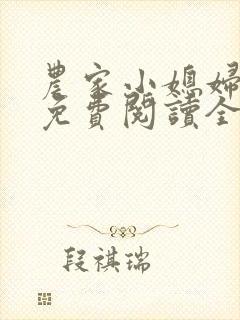 農家小媳婦
免費閱讀全
段祺瑞